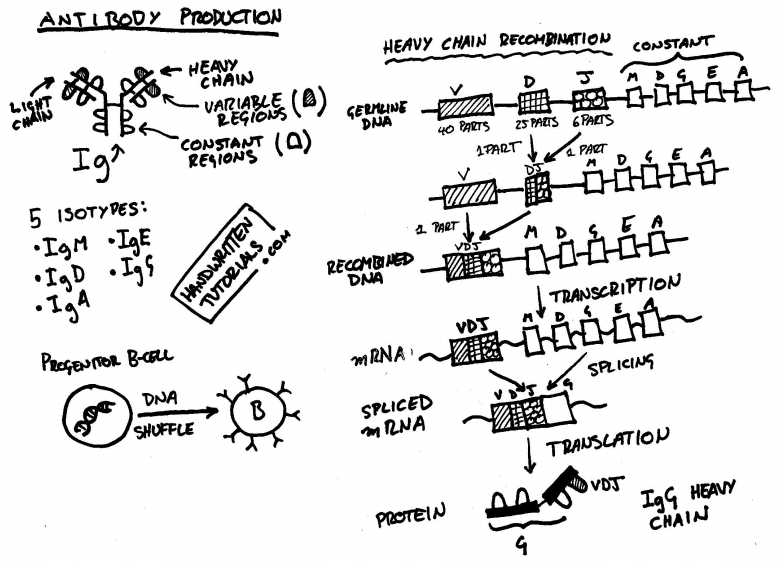 ANTIBODY PRODUCTION
HEAVY CHAIN
LIGHT CHAIN
VARIABLE REGIONS ( )
CONSTANT REGIONS ( )
Ig
5 ISOTYPES:
• IgM • IgE
• IgD • IgG
• IgA
HANDWRITTEN
TUTORIALS.COM
PROGENITOR B-CELL
DNA
SHUFFLE
B
HEAVY CHAIN RECOMBINATION
CONSTANT
V D J M D G E A
GERMLINE DNA
40 PARTS 25 PARTS 6 PARTS
1 PART 1 PART
V DJ M D G E A
1 PART
VDJ M D G E A
RECOMBINED DNA
TRANSCRIPTION
VDJ M D G E A
mRNA
SPLICING
V D J G
SPLICED mRNA
TRANSLATION
VDJ
PROTEIN
G
IgG HEAVY CHAIN